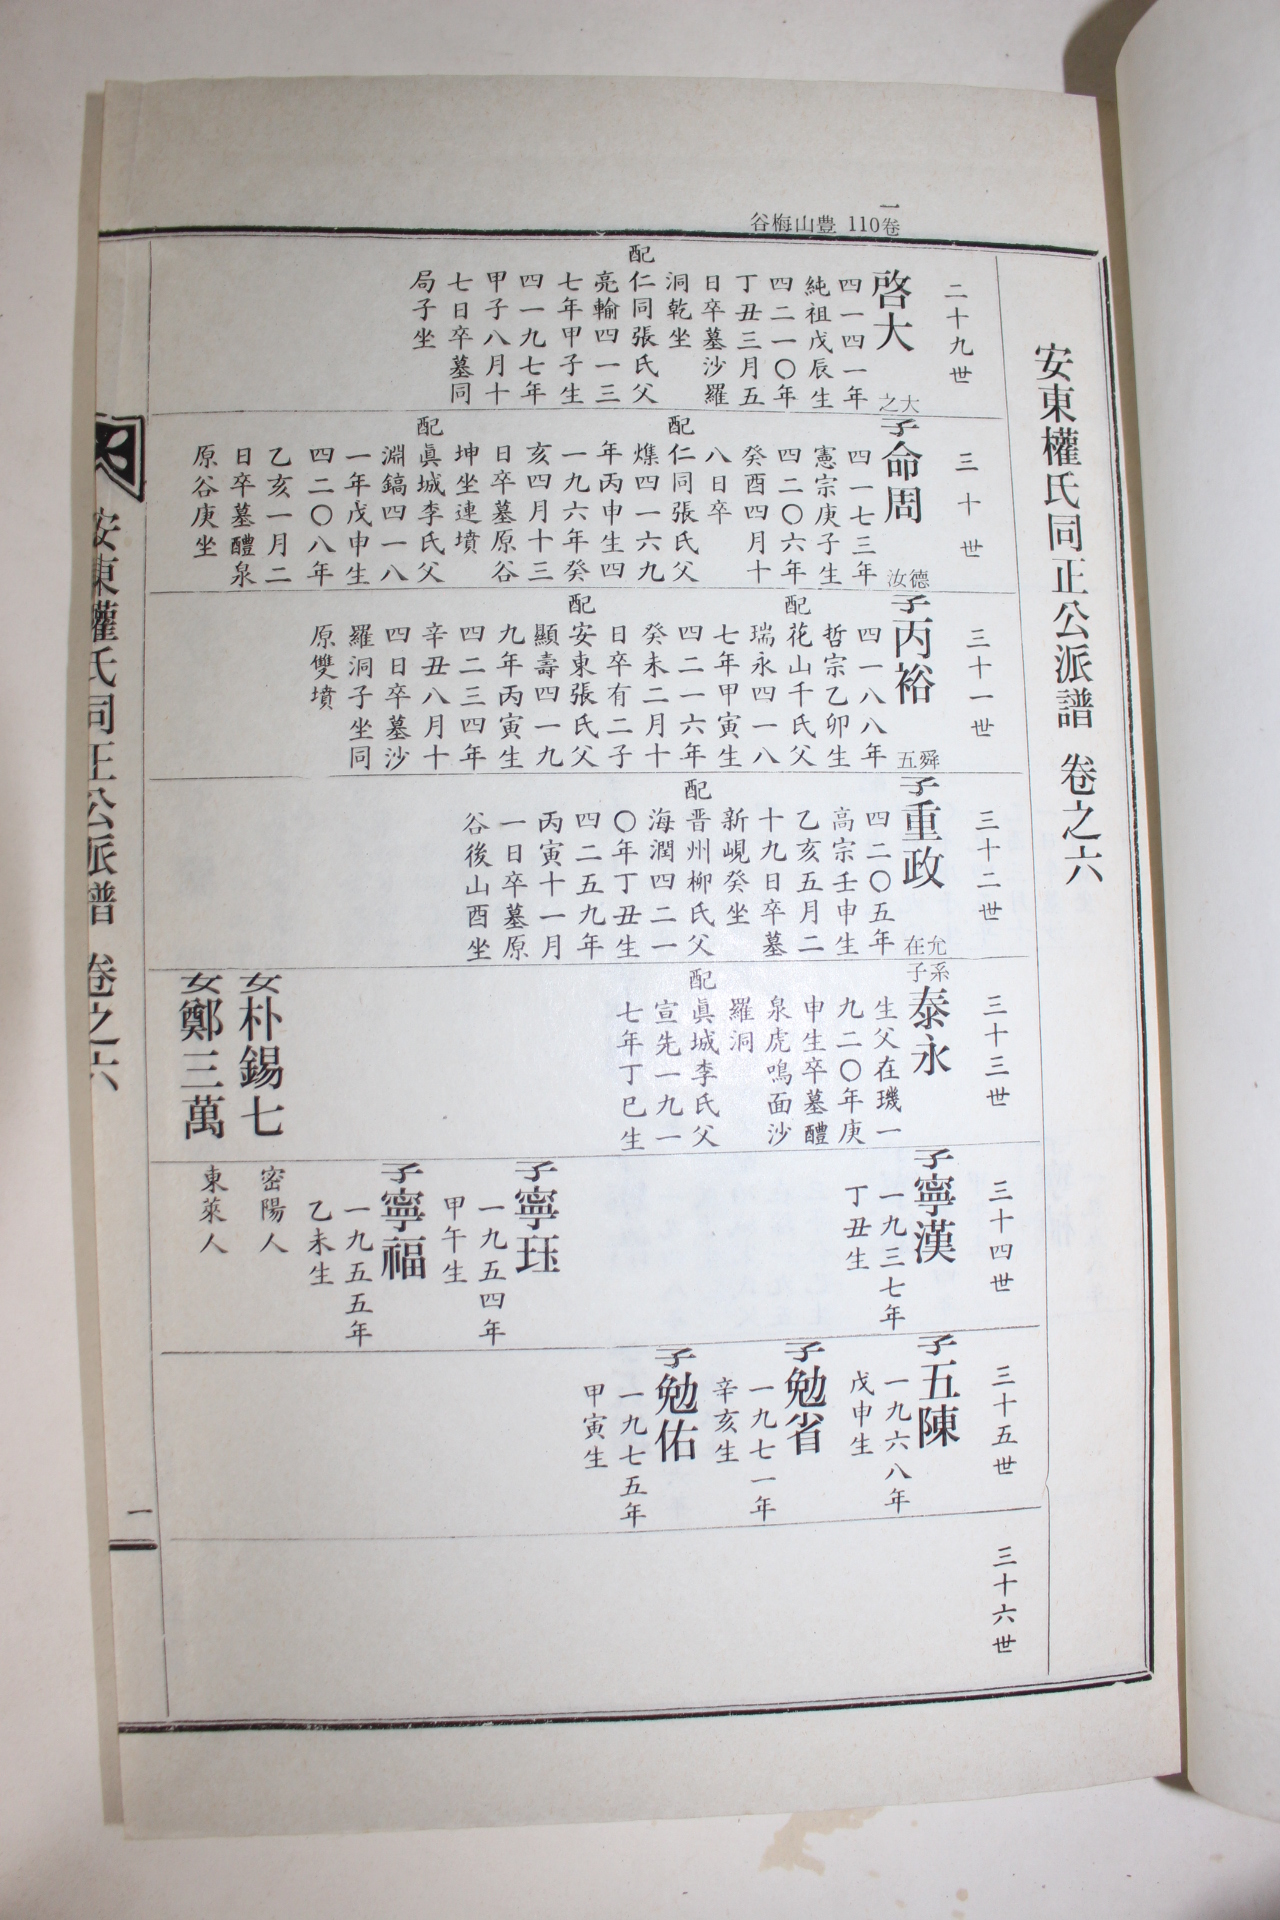 安東權氏同正公派譜 卷之六
一卷110 豊山梅谷
二十九世
啓大
四一四一年
純祖戊辰生
四二一〇年
丁丑三月五
日卒墓沙羅
洞乾坐
配仁同張氏父
亮輪四一三
七年甲子生
四一九七年
甲子八月十
七日卒墓同
局子坐
三十世
大之
子命周
四一七三年
憲宗庚子生
四二〇六年
癸酉四月十
八日卒
配仁同張氏父
燋四一六九
年丙申生四
一九六年癸
亥四月十三
日卒墓原谷
坤坐連墳
配眞城李氏父
淵鎬四一八
一年戊申生
四二〇八年
乙亥一月二
日卒墓醴泉
原谷庚坐
三十一世
德汝
子丙裕
四一八八年
哲宗乙卯生
配花山千氏父
瑞永四一八
七年甲寅生
四二一六年
癸未二月十
日卒有二子
配安東張氏父
顯壽四一九
九年丙寅生
四二三四年
辛丑八月十
四日卒墓沙
羅洞子坐同
原雙墳
三十二世
舜五
子重政
四二〇五年
高宗壬申生
乙亥五月二
十九日卒墓
新峴癸坐
配晋州柳氏父
海潤四二一
〇年丁丑生
四二五九年
丙寅十一月
一日卒墓原
谷後山酉坐
三十三世
允在
系子泰永
生父在璣一
九二〇年庚
申生卒墓醴
泉虎鳴面沙
羅洞
配眞城李氏父
宣先一九一
七年丁巳生
女朴錫七
女鄭三萬
三十四世
子寧漢
一九三七年
丁丑生
子寧珏
一九五四年
甲午生
子寧福
一九五五年
乙未生
密陽人
東萊人
三十五世
子五陳
一九六八年
戊申生
子勉省
一九七一年
辛亥生
子勉佑
一九七五年
甲寅生
三十六世
安東權氏同正公派譜 卷之六
一